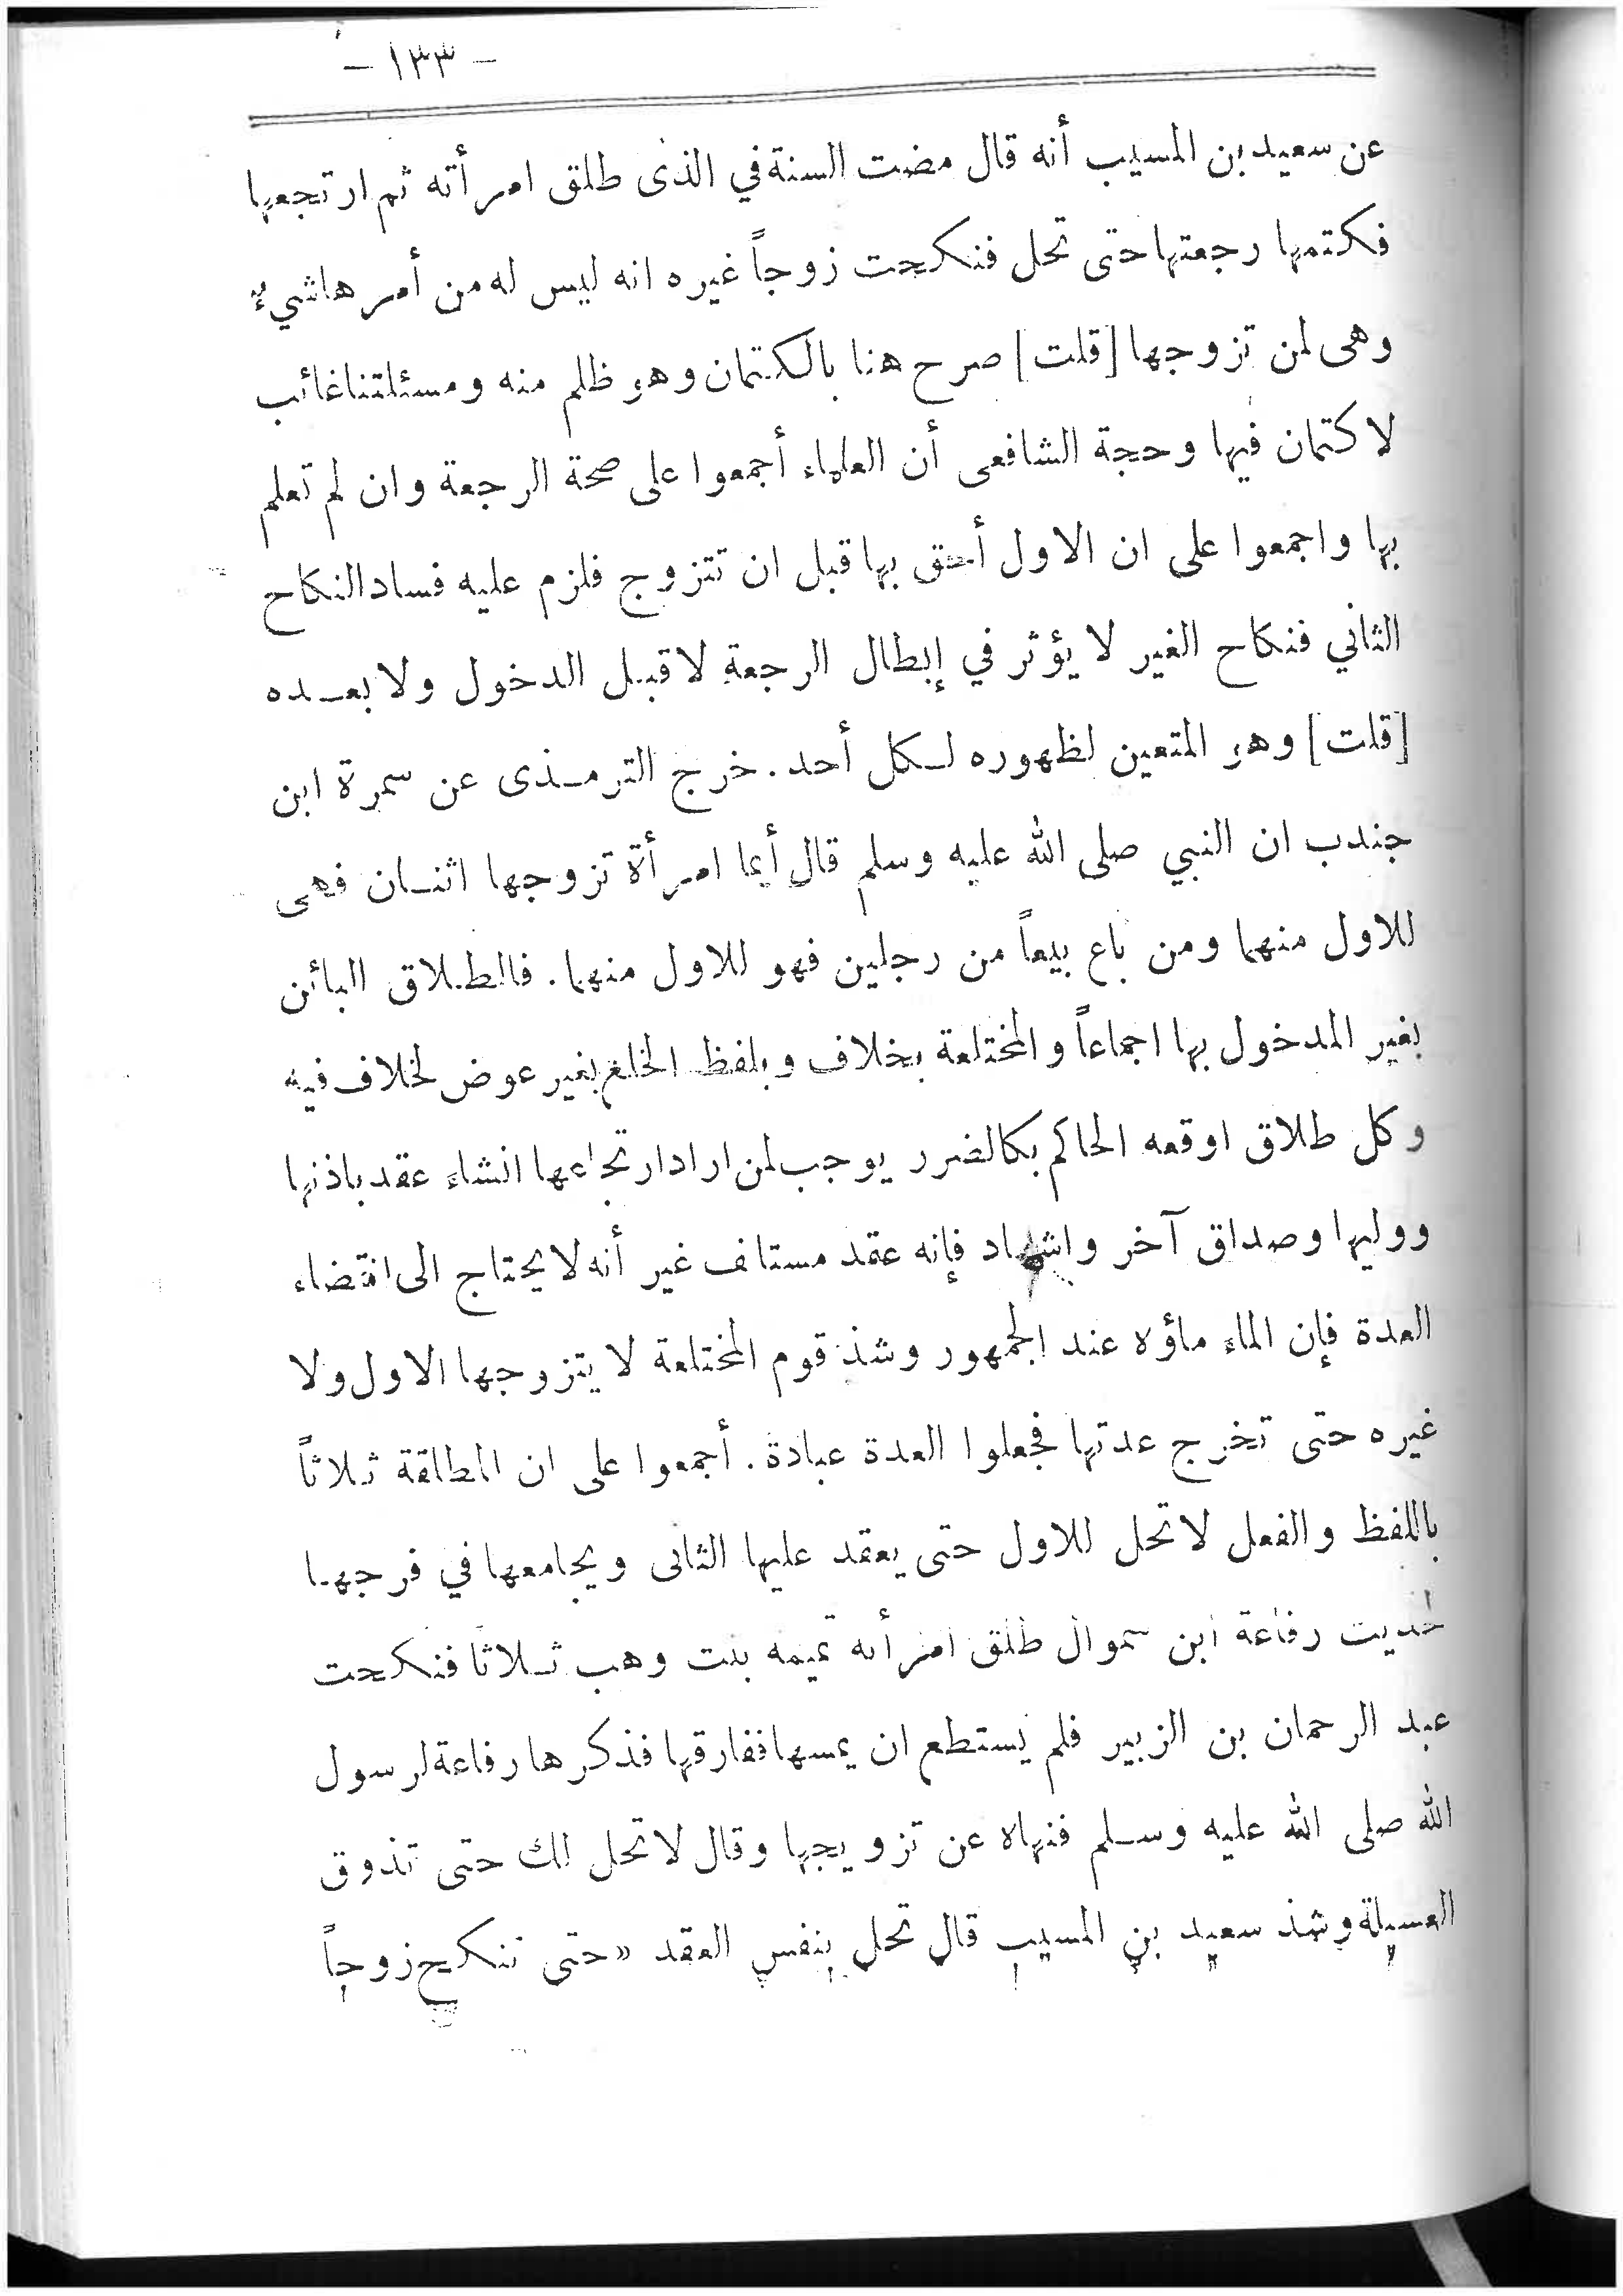 - ١٣٣ -
عن سعيد بن المسيب أنه قال مضت السنة في الذى طلق امرأته ثم ارتجعها
فكتمها رجعتها حتى تحل فنكحت زوجاً غيره انه ليس له من أمرها شيءٌ
وهى لمن تزوجها [قلت] صرح هنا بالكتمان وهو ظلم منه ومسئلتنا غائب
لا كتمان فيها وحجة الشافعى أن العلماء أجمعوا على صحة الرجعة وان لم تعلم
بها واجمعوا على ان الاول أحق بها قبل ان تتزوج فلزم عليه فساد النكاح
الثاني فنكاح الغير لا يؤثر في إبطال الرجعة لا قبل الدخول ولا بعده
[قلت] وهو المتعين لظهوره لكل أحد. خرج الترمذى عن سمرة ابن
جندب ان النبي صلى الله عليه وسلم قال أيما امرأة تزوجها اثنان فهى
للاول منهما ومن باع بيعاً من رجلين فهو للاول منهما. فالطلاق البائن
بغير المدخول بها اجماعاً والمختلعة بخلاف وبلفظ الخلع بغير عوض لخلاف فيه
وكل طلاق اوقعه الحاكم بكالضرر يوجب لمن اراد ارتجاعها انشاء عقد باذنها
ووليها وصداق آخر واشهاد فإنه عقد مستانف غير أنه لا يحتاج الى انقضاء
العدة فإن الماء ماؤه عند الجمهور وشذ قوم المختلعة لا يتزوجها الاول ولا
غيره حتى تخرج عدتها فجعلوا العدة عبادة. أجمعوا على ان المطلقة ثلاثاً
باللفظ والفعل لا تحل للاول حتى يعقد عليها الثانى ويجامعها في فرجها
لحديث رفاعة ابن سموال طلق امرأته تميمه بنت وهب ثلاثا فنكحت
عبد الرحمان بن الزبير فلم يستطع ان يمسها ففارقها فذكرها رفاعة لرسول
الله صلى الله عليه وسلم فنهاه عن تزويجها وقال لا تحل لك حتى تذوق
العسيلة وشذ سعيد بن المسيب قال تحل بنفس العقد «حتى تنكح زوجاً